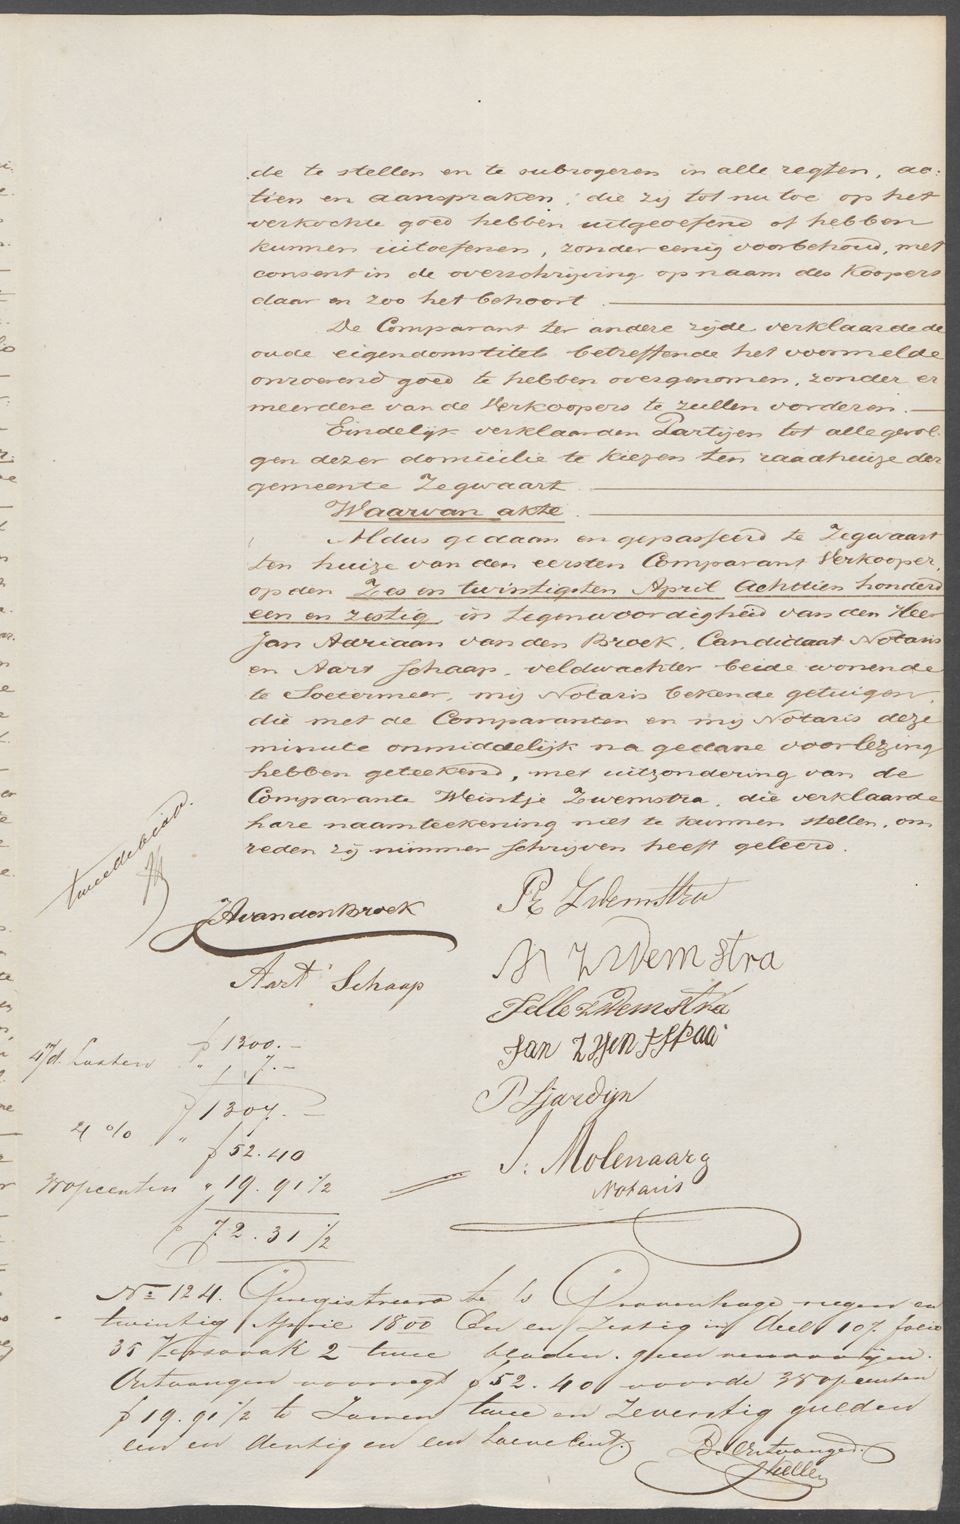 de te stellen en te subrogeren in alle regten, ac:
tien en aanspraken, die zij tot nu toe op het
verkochte goed hebben uitgeoefend of hebben
kunnen uitoefenen, zonder eenig voorbehoud, met
consent in de overschrijving op naam des Koopers
daar en zoo het behoort.
De Comparant ter andere zijde verklaarde de
oude eigendomstitels betreffende het voormelde
onroerend goed te hebben overgenomen, zonder er
meerdere van de Verkoopers te zullen vorderen.
Eindelijk verklaarden Partijen tot alle gevol-
gen dezer domicilie te kiezen ten raadhuize der
gemeente Zegwaart.
Waarvan akte.
Aldus gedaan en gepasseerd te Zegwaart
ten huize van den eersten Comparant Verkooper,
op den Zes en twintigsten April Achttien honderd
een en zestig, in tegenwoordigheid van den Heer
Jan Adriaan van den Broek, Candidaat Notaris
en Aart Schaap, veldwachter beide wonende
te Soetermeer, mij Notaris bekende getuigen,
die met de Comparanten en mij Notaris deze
minute onmiddelijk na gedane voorlezing
hebben geteekend, met uitzondering van de
Comparante Weintje Zwemstra, die verklaarde
hare naamteekening niet te kunnen stellen, om
reden zij nimmer schrijven heeft geleerd.
tweede blad.
JAvandenBroek
Aart Schaap
PE Zwemstra
A Zwemstra
Jelle Zwemstra
Jan
P Sjardijn
J: Molenaar
Notaris
ƒ 1300.-
Lasten " 7.-
ƒ 1307.-
4 % " ƒ 52.40
38 opcenten " 19.91 1/2
ƒ 72.31 1/2
No 124. Geregistreerd te 's Gravenhage negen en
twintig April 1800 Een en Zestig in deel 107 folio
35 Verso vak 2 twee bladen geen renvooijen.
Ontvangen voor regt ƒ 52.40 voor de 38 opcenten
ƒ 19.91 1/2 te Zamen twee en Zeventig gulden
een en dertig en een halve Cent.
De Ontvanger.